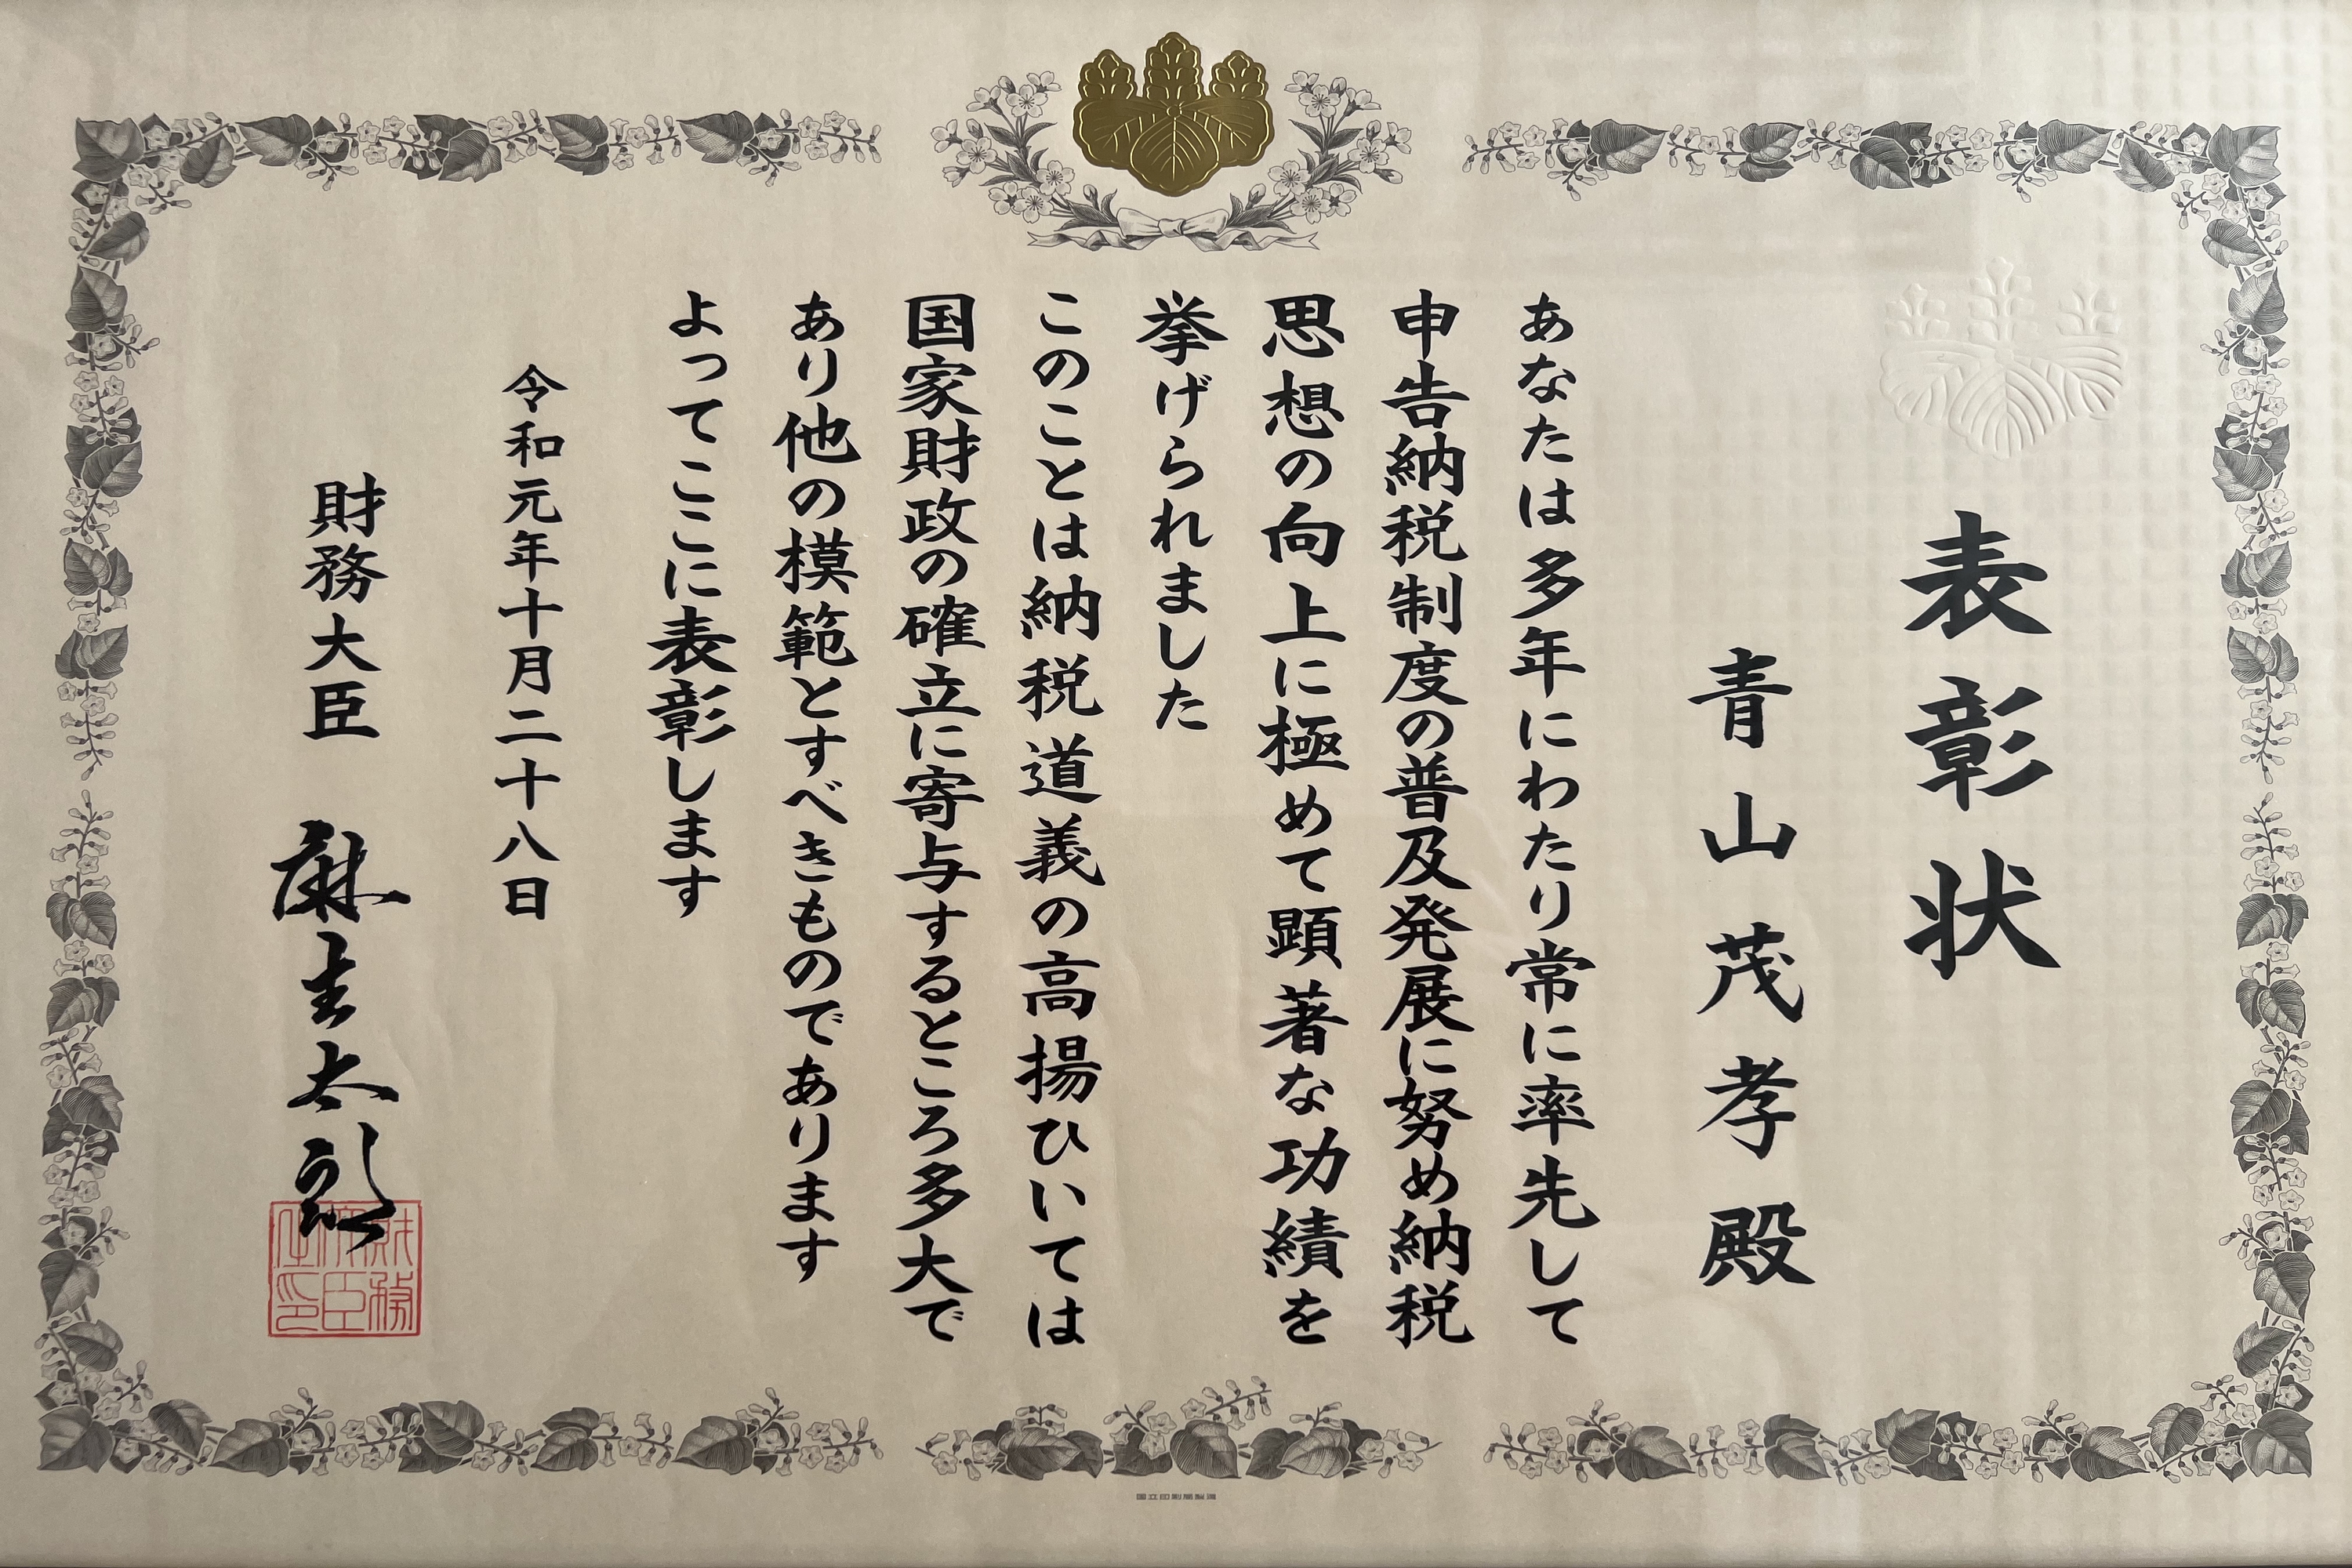 表彰状
青山茂孝殿
あなたは多年にわたり常に率先して
申告納税制度の普及発展に努め納税
思想の向上に極めて顕著な功績を
挙げられました
このことは納税道義の高揚ひいては
国家財政の確立に寄与するところ多大で
あり他の模範とすべきものであります
よってここに表彰します
令和元年十月二十八日
財務大臣 麻生太郎
財務大臣之印
国立印刷局製造